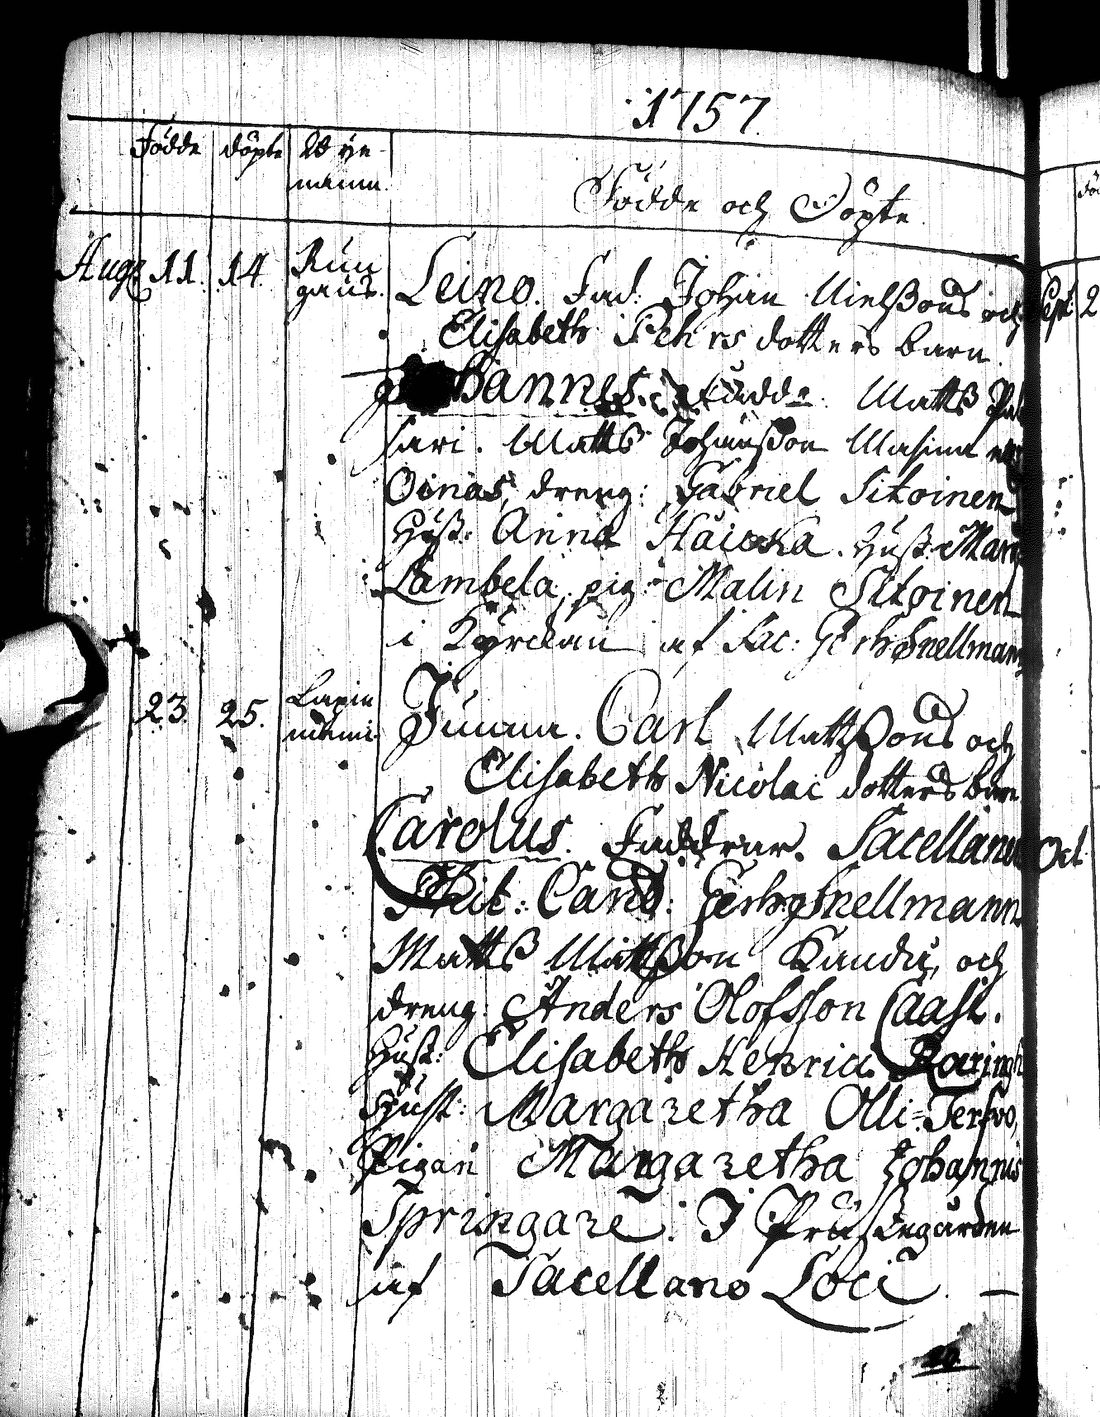 1757
Födde döpte Byenamn.
Födde och Döpte.
Aug 11. 14. Leino. Fad: Johan Nielssons och
Elisabeth Pehrs dotters barn.
Johannes. Fadd. Matts
sari. Matts Johansson
Oinas, dreng: Gabriel Sitoinen
Hust: Anna . Hust: Marg
Lambela, pig: Malin Sitoinen
i Kyrckan af Sac: Gerh Snellman
23. 25. Jumma. Carl Mattssons och
Elisabeth Nicolai dotters barn
Carolus. Faddrar. Sacellanus
Phil: Cand: Gerh Snellmann
Matts Mattsson och
dreng: Anders Olofsson Caast.
Hust: Elisabeth Henrics
Hust: Margaretha Olli-Terfvo,
Pigan Margaretha Johannis
Springare. I Prästegården
af Sacellano Loci.
Sept 2
Oct